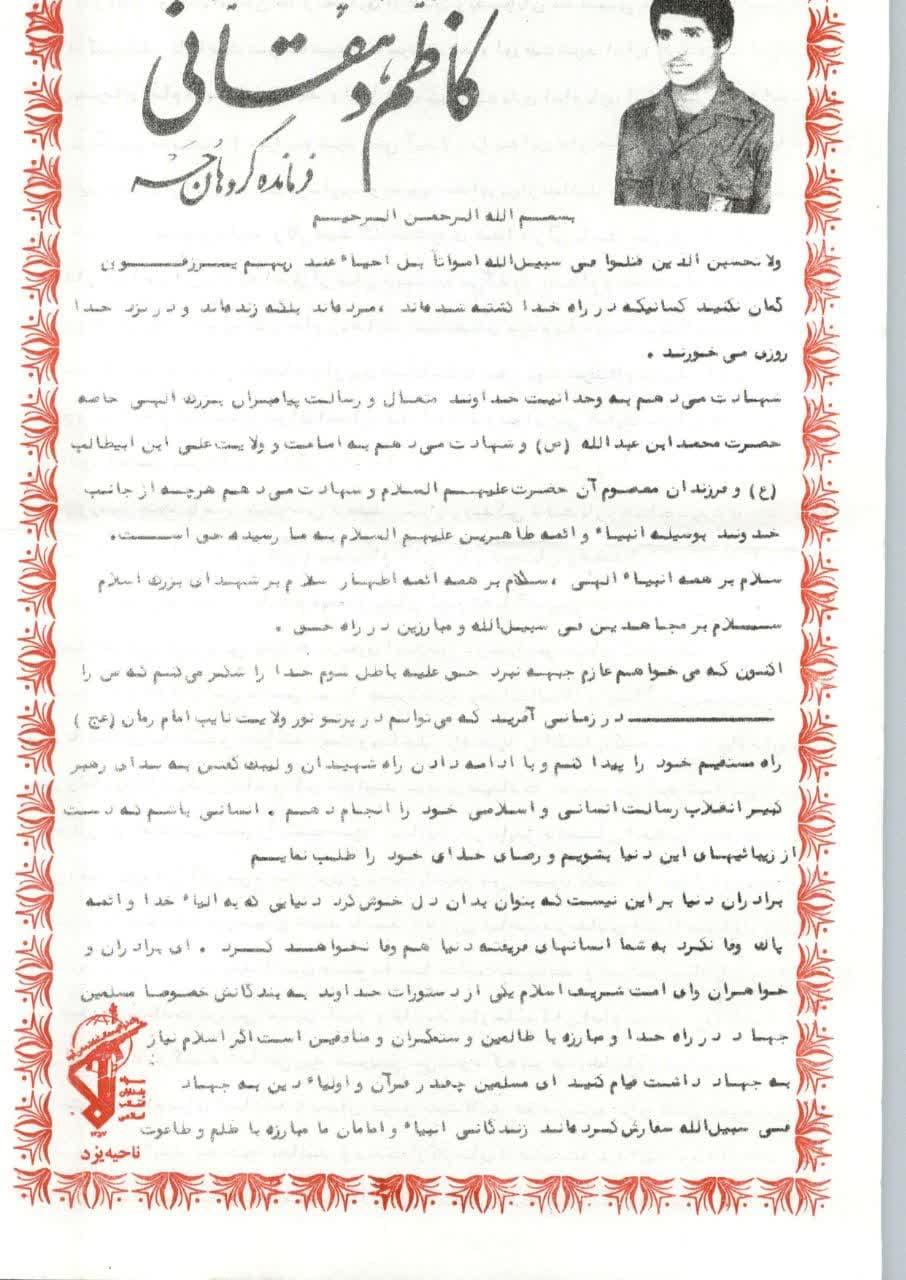 کاظم دهقانی
فرمانده گروهان
بسم الله الرحمن الرحیم
ولا تحسبن الذین قتلوا فی سبیل‌الله امواتاً بل احیاء عند ربهم یرزقون
گمان نکنید کسانیکه در راه خدا کشته شده‌اند ،مرده‌اند بلکه زنده‌اند و در نزد خدا
روزی می خورند .
شهادت می دهم به وحدانیت خداوند متعال و رسالت پیامبران بزرگ الهی خاصه
حضرت محمد ابن عبدالله (ص) و شهادت می دهم به امامت و ولایت علی ابن ابیطالب
(ع) و فرزندان معصوم آن حضرت علیهم السلام و شهادت می دهم هرچه از جانب
خدوند بوسیله انبیاء و ائمه طاهرین علیهم السلام به ما رسیده حق است.
سلام بر همه انبیاء الهی ، سلام بر همه ائمه اطهار سلام بر شهدای بزرگ اسلام
سلام بر مجاهدین فی سبیل‌الله و مبارزین در راه حق .
اکنون که می خواهم عازم جبهه نبرد حق علیه باطل شوم خدا را شکر می‌کنم که من را
در زمانی آفرید که می‌توانم در پرتو نور ولایت نایب امام زمان (عج )
راه مستقیم خود را پیدا کنم و با ادامه دادن راه شهیدان و لبیک گفتن به ندای رهبر
کبیر انقلاب رسالت انسانی و اسلامی خود را انجام دهم . انسانی باشم که دست
از زیبائیهای این دنیا بشویم و رضای خدای خود را طلب نمایم
برادران دنیا بر این نیست که بتوان بدان دل خوش کرد دنیایی که به الیاء خدا و ائمه
پاک وفا نکرد به شما انسانهای فریفته دنیا هم وفا نخواهد کرد . ای برادران و
خواهران وای امت شریف اسلام یکی از دستورات خداوند به بندگانش خصوصا مسلمین
جهاد در راه خدا و مبارزه با ظالمین و ستمگران و منافقین است اگر اسلام نیاز
به جهاد داشت قیام کنید ای مسلمین چقدر قرآن و اولیاء دین به جهاد
فی سبیل‌الله سفارش کرده‌اند زندگانی انبیاء و امامان ما مبارزه با ظلم و طاغوت
سپاه
پاسداران
انقلاب
اسلامی
ناحیه یزد